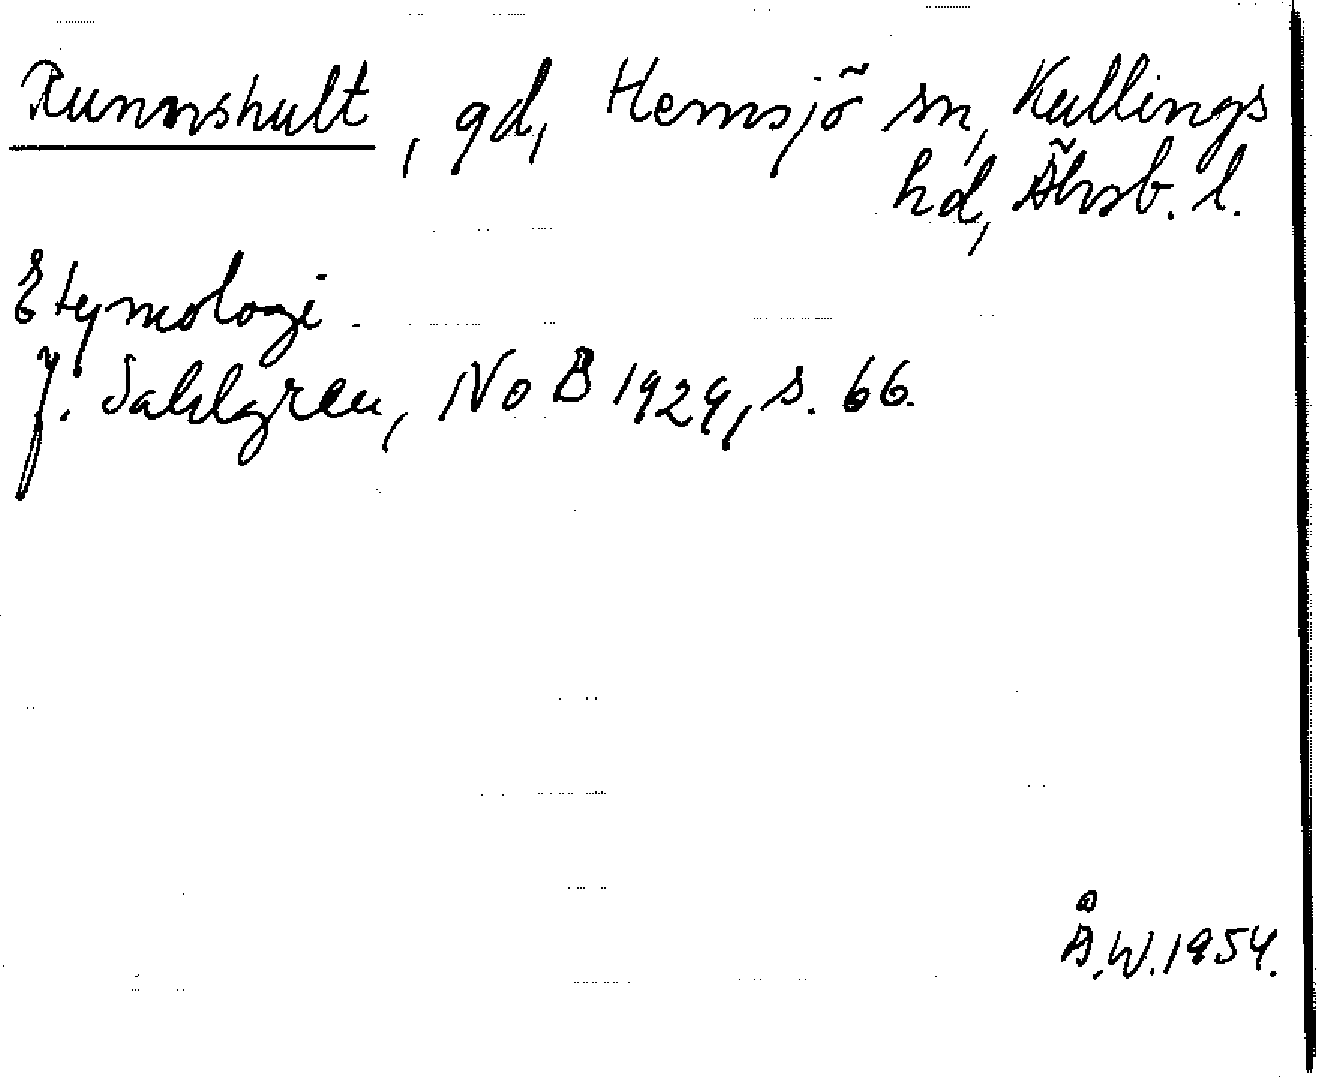 Runnshult, gd, Hemsjö sn, Kullings
hd, Älvsb. l.
Etymologi.
J. Sahlgren, NoB 1929, s. 66.
Å.W. 1954.